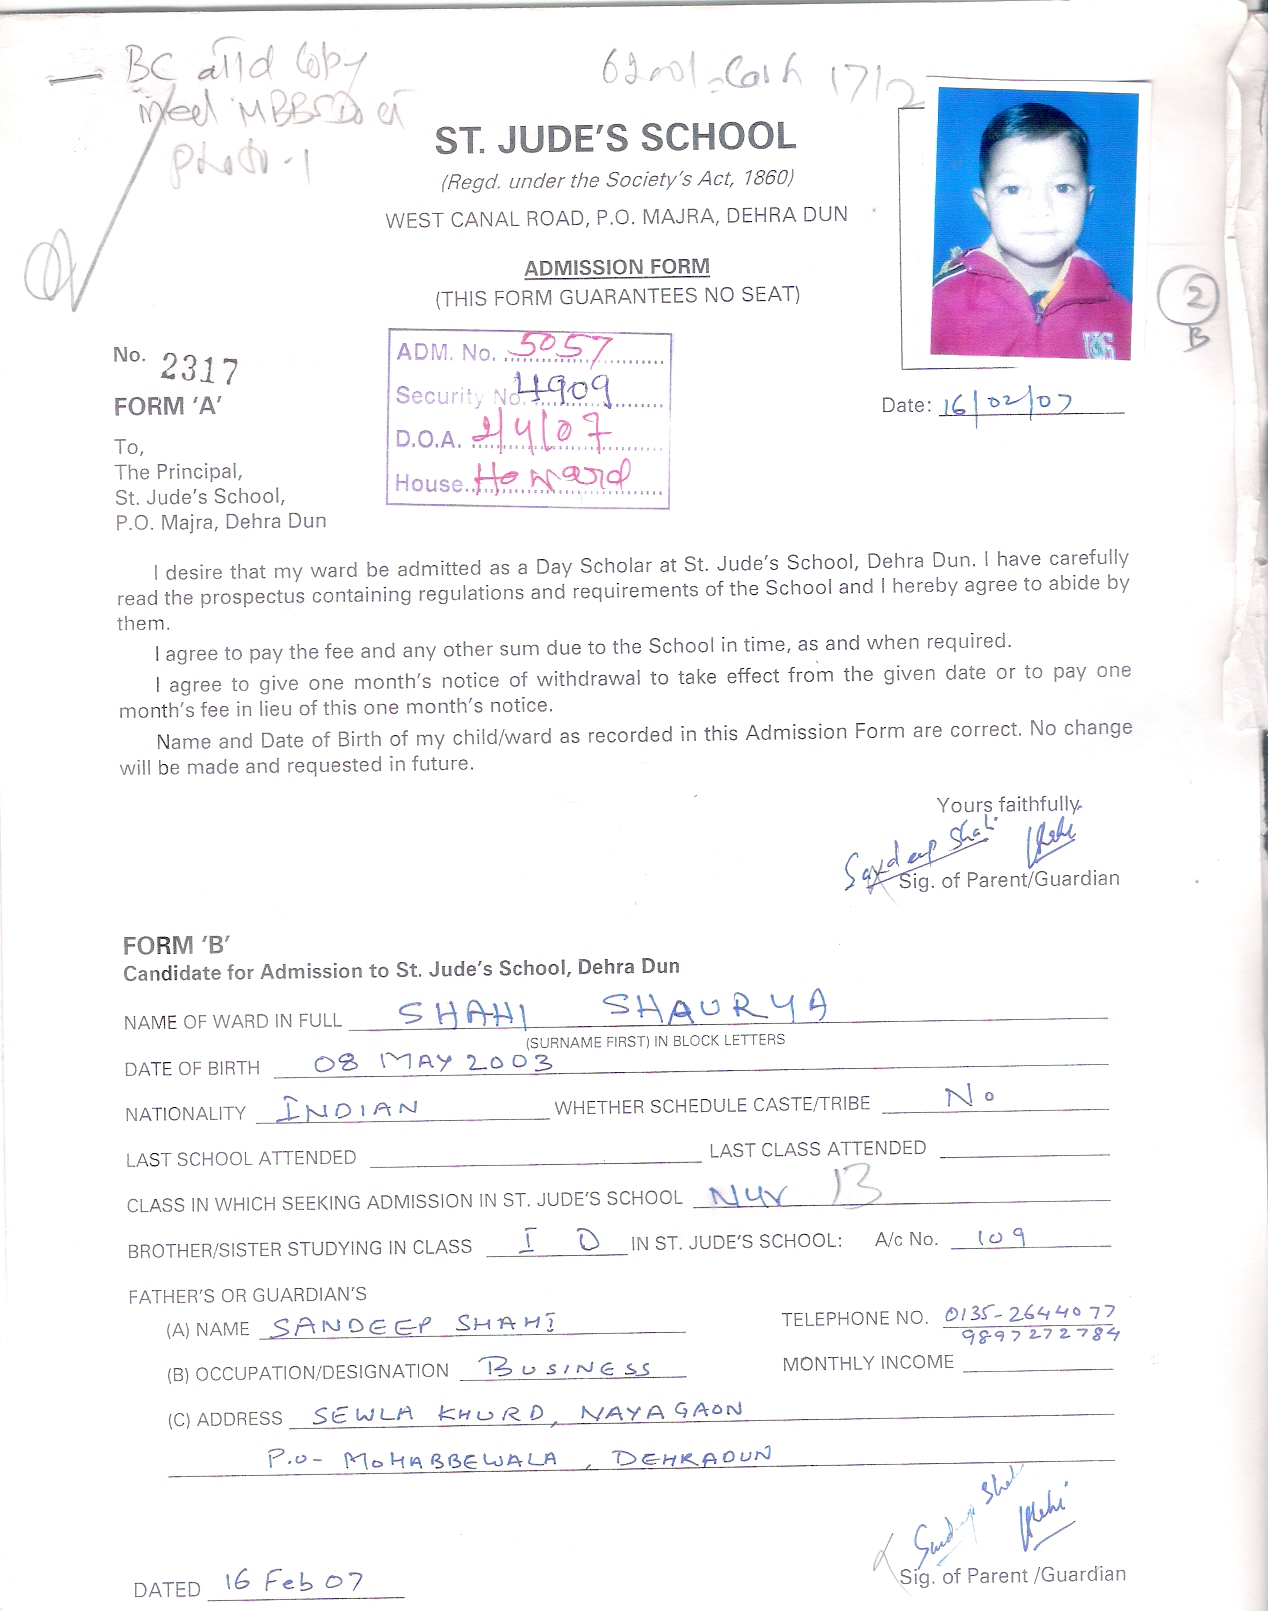 BC attd Copy
need MBBS Doct
Photo - 1
Cash 17/2
ST. JUDE'S SCHOOL
(Regd. under the Society's Act, 1860)
WEST CANAL ROAD, P.O. MAJRA, DEHRA DUN
ADMISSION FORM
(THIS FORM GUARANTEES NO SEAT)
2
B
No. 2317
ADM. No. 5057
Security No. 4909
D.O.A. 2/4/07
House Howard
FORM 'A'
Date: 16/02/07
To,
The Principal,
St. Jude's School,
P.O. Majra, Dehra Dun
I desire that my ward be admitted as a Day Scholar at St. Jude's School, Dehra Dun. I have carefully
read the prospectus containing regulations and requirements of the School and I hereby agree to abide by
them.
I agree to pay the fee and any other sum due to the School in time, as and when required.
I agree to give one month's notice of withdrawal to take effect from the given date or to pay one
month's fee in lieu of this one month's notice.
Name and Date of Birth of my child/ward as recorded in this Admission Form are correct. No change
will be made and requested in future.
Yours faithfully.
Sandeep Shahi
Sig. of Parent/Guardian
FORM 'B'
Candidate for Admission to St. Jude's School, Dehra Dun
NAME OF WARD IN FULL SHAHI SHAURYA
(SURNAME FIRST) IN BLOCK LETTERS
DATE OF BIRTH 08 MAY 2003
NATIONALITY INDIAN WHETHER SCHEDULE CASTE/TRIBE No
LAST SCHOOL ATTENDED LAST CLASS ATTENDED
CLASS IN WHICH SEEKING ADMISSION IN ST. JUDE'S SCHOOL Nur B
BROTHER/SISTER STUDYING IN CLASS I D IN ST. JUDE'S SCHOOL: A/c No. 109
FATHER'S OR GUARDIAN'S
(A) NAME SANDEEP SHAHI TELEPHONE NO. 0135-2644077
9897272784
(B) OCCUPATION/DESIGNATION BUSINESS MONTHLY INCOME
(C) ADDRESS SEWLA KHURD, NAYAGAON
P.O- MOHABBEWALA, DEHRADUN
Sandeep Shahi
Sig. of Parent /Guardian
DATED 16 Feb 07